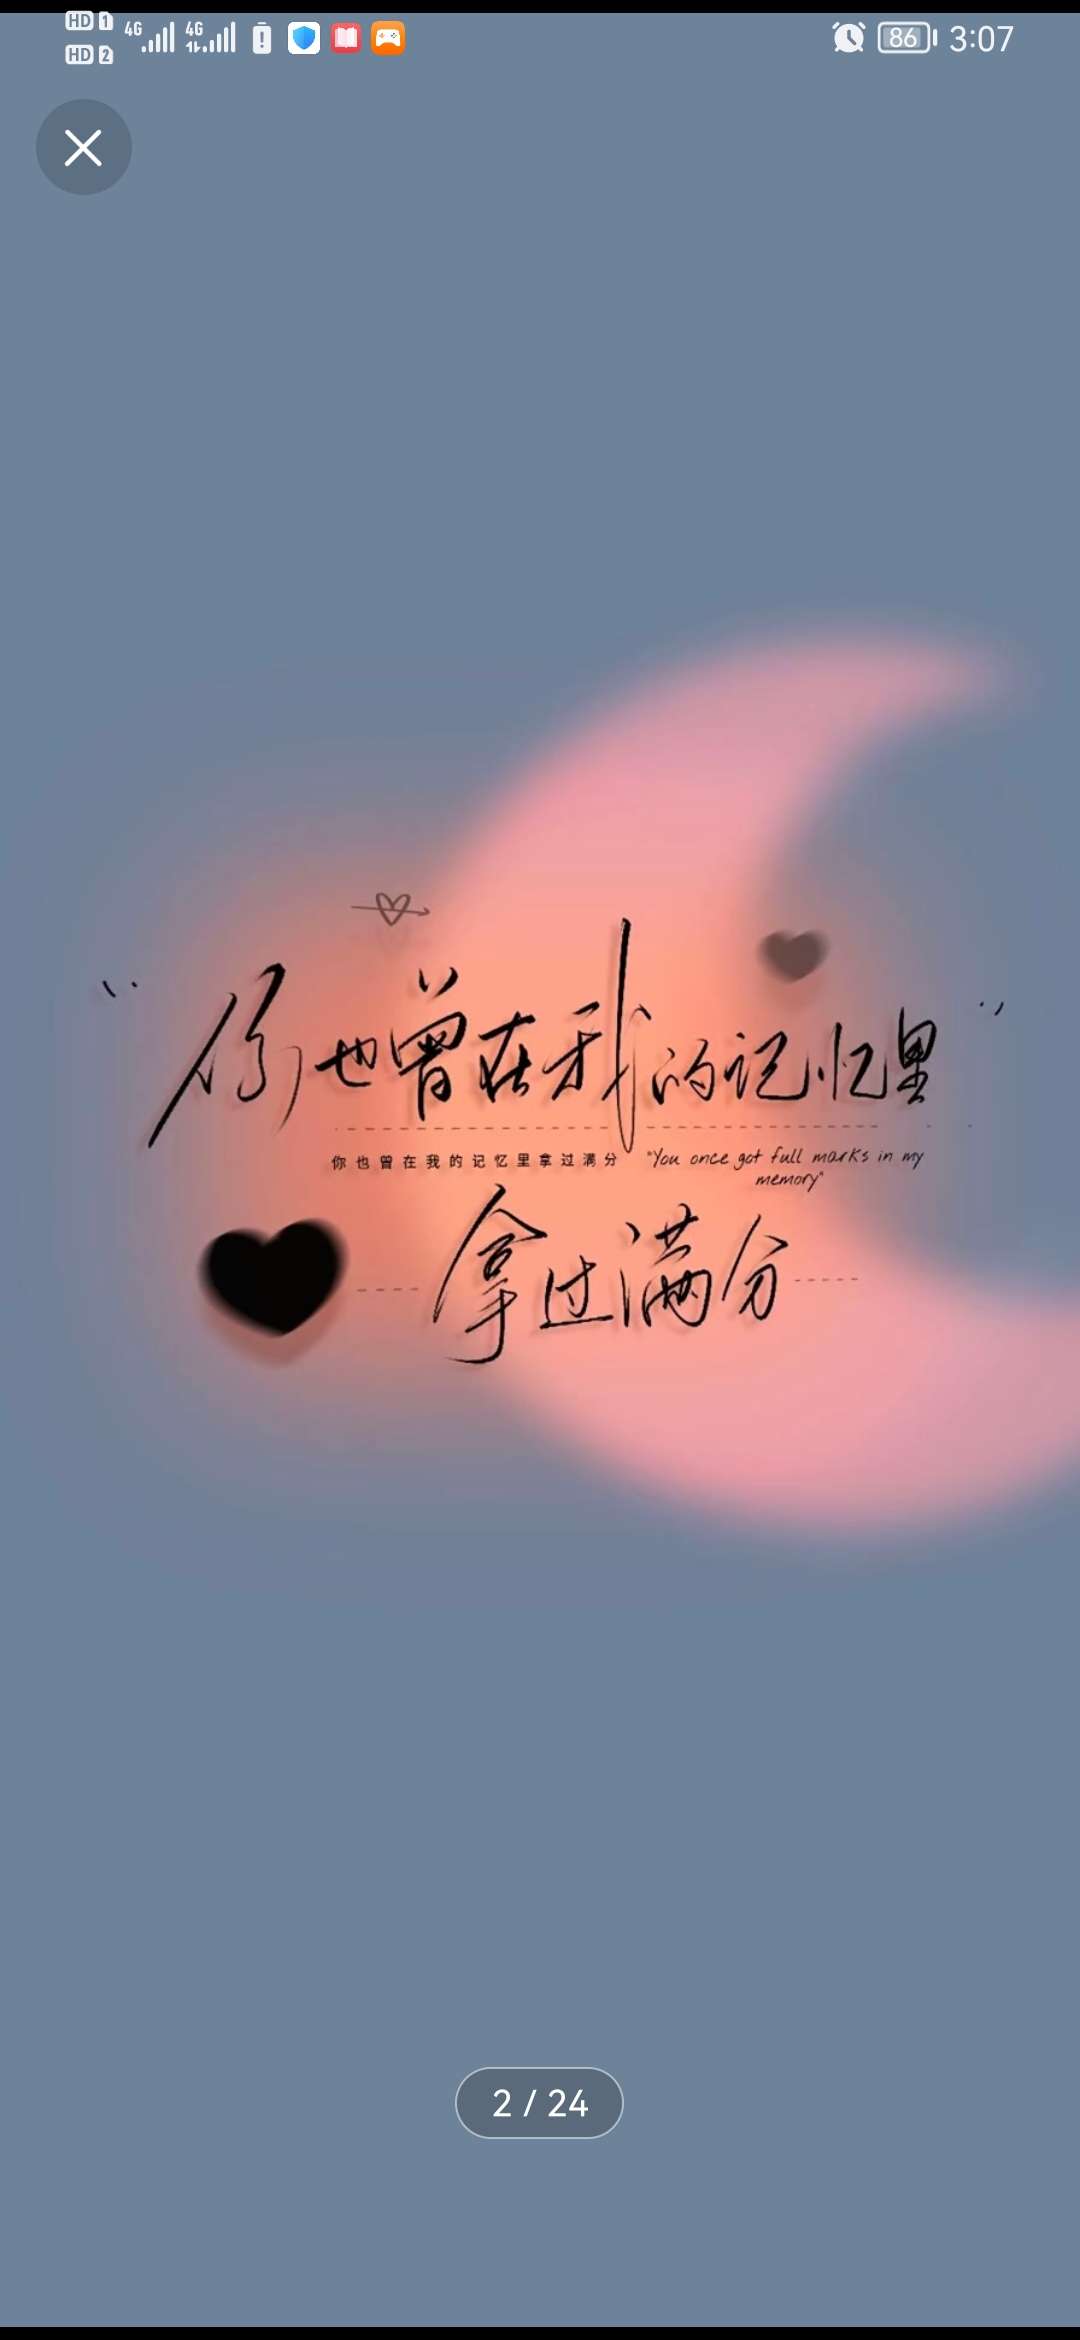 HD 1 4G 4G 86 3:07
HD 2
“你也曾在我的记忆里”
你也曾在我的记忆里拿过满分 "You once got full marks in my
memory"
拿过满分
2 / 24